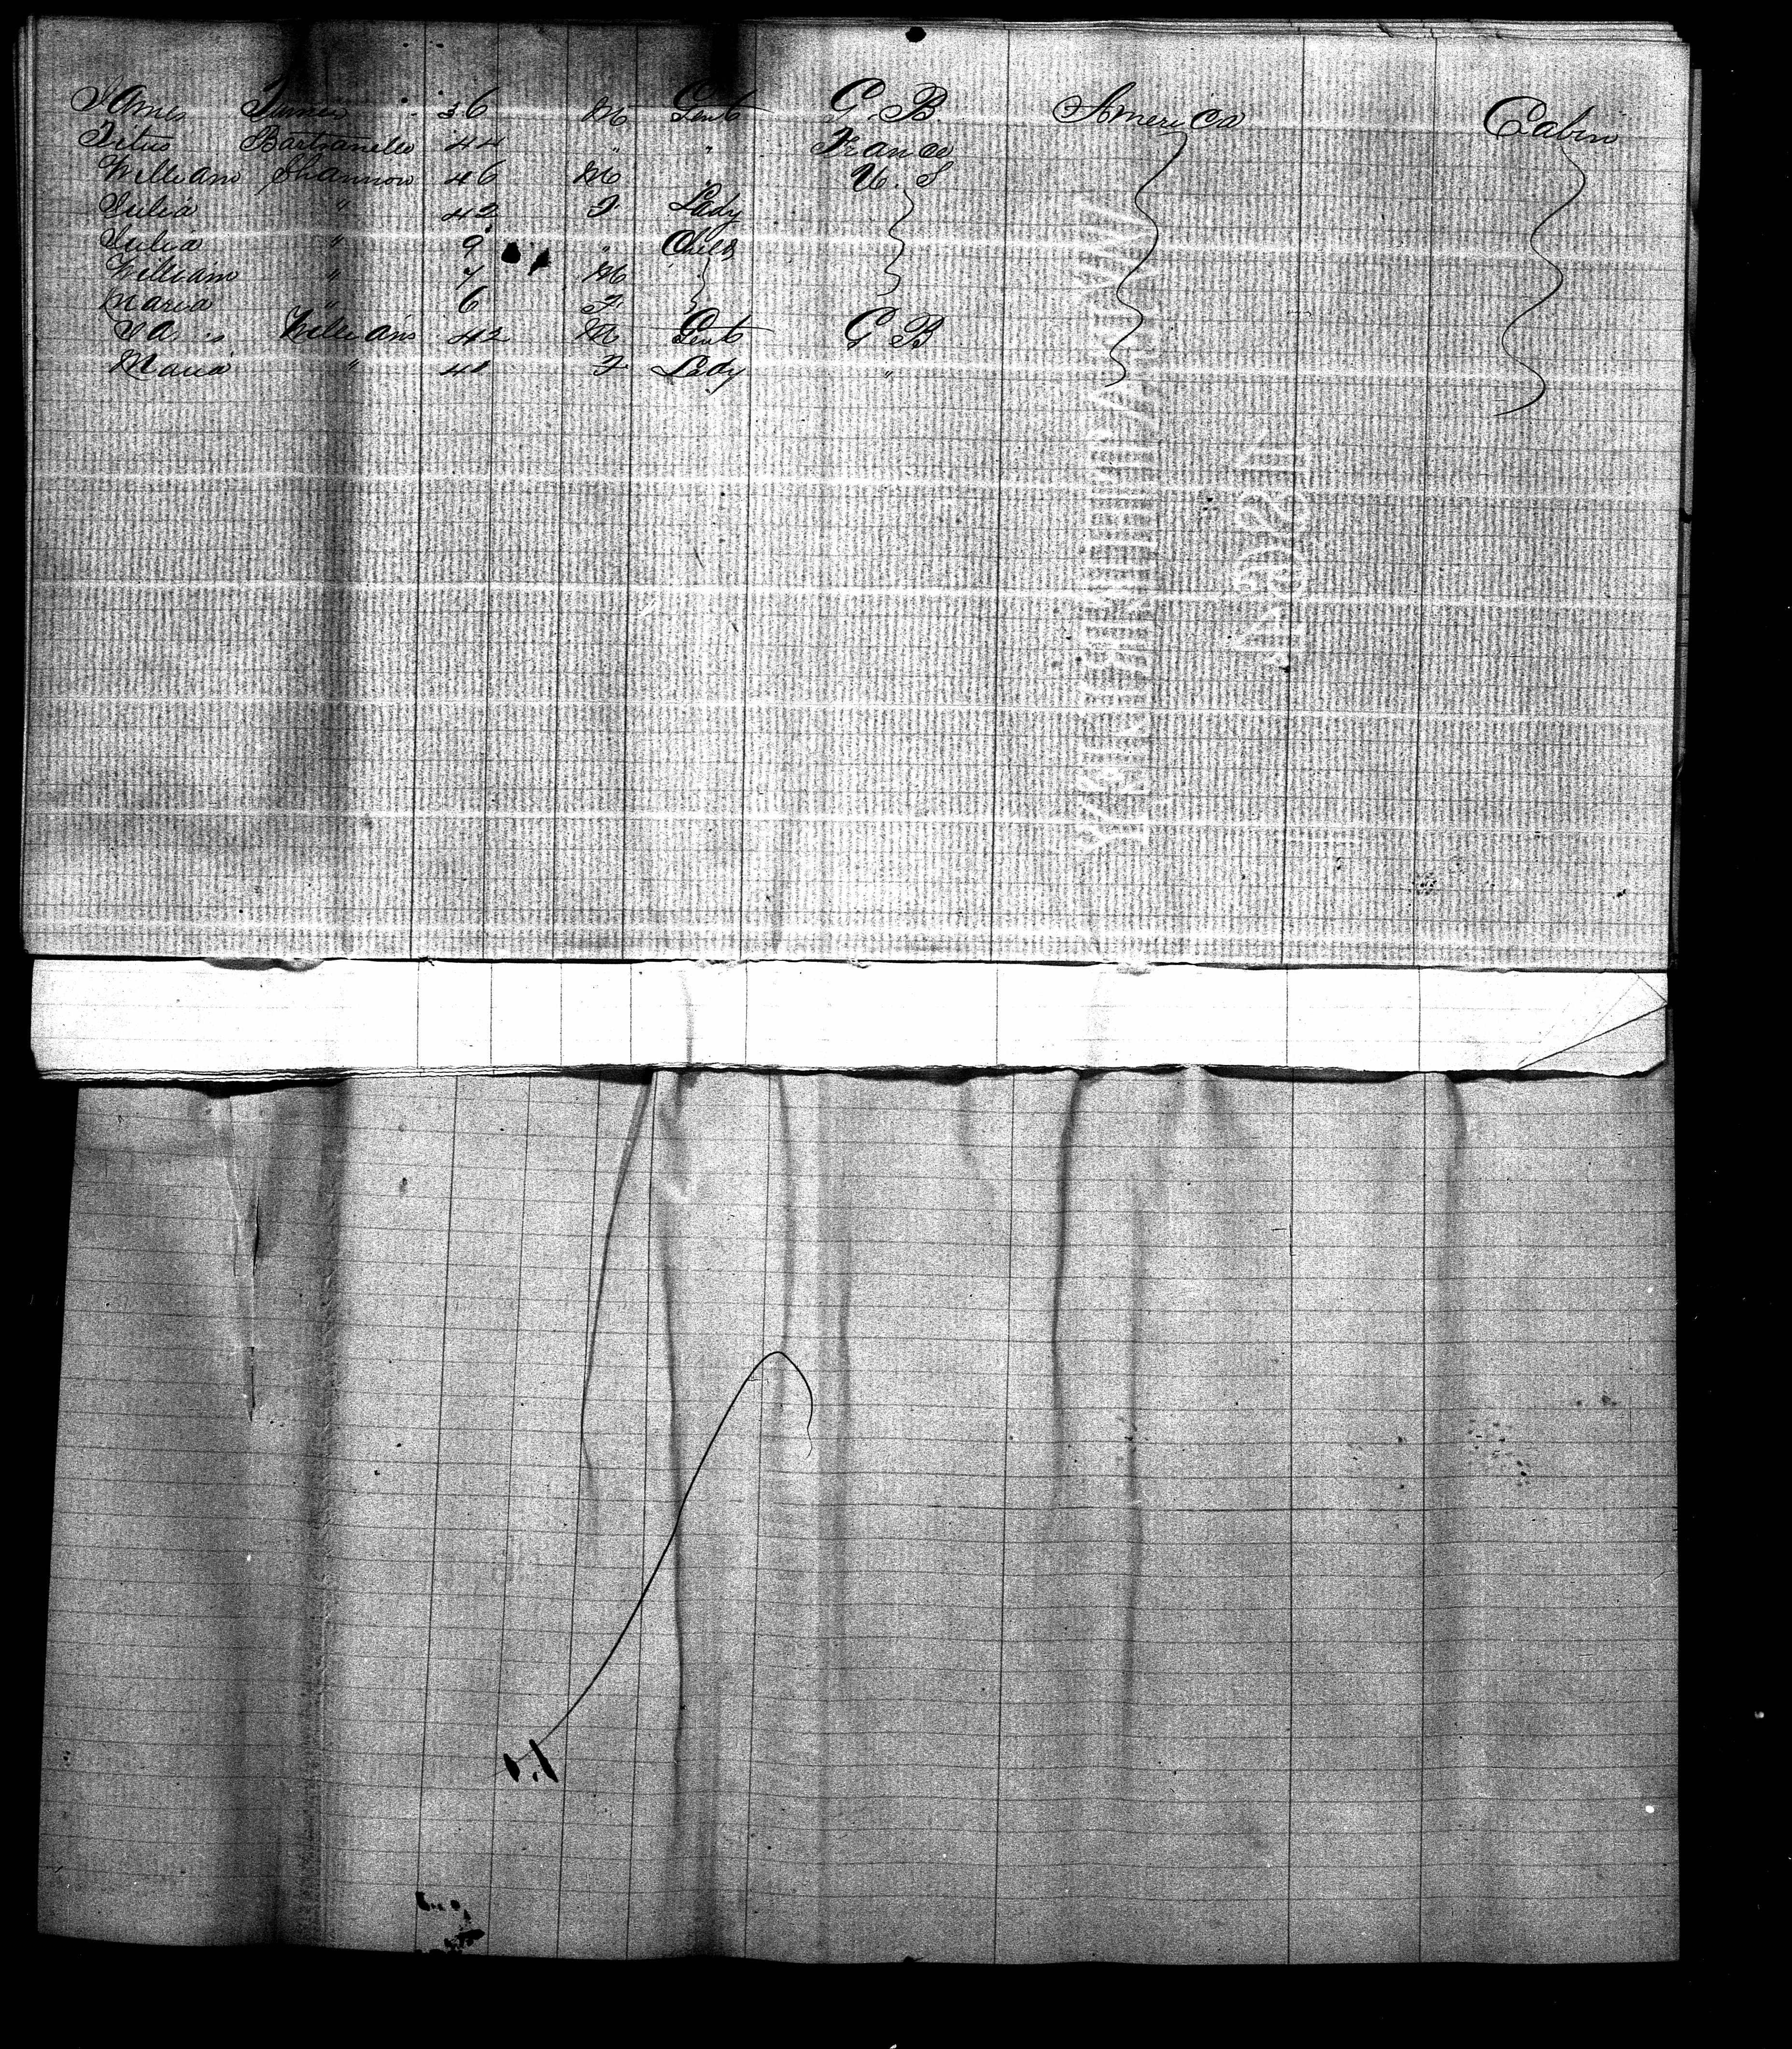 James Turner 36 M Gent G. B. America Cabin
Titus 44 " " France
William Shannon 46 M " U. S
Julia " 42 F Lady
Julia " 9 " Child
William " 7 M
Maria " 6 F
Williams 42 M Gent G B
Maria " 41 F Lady "